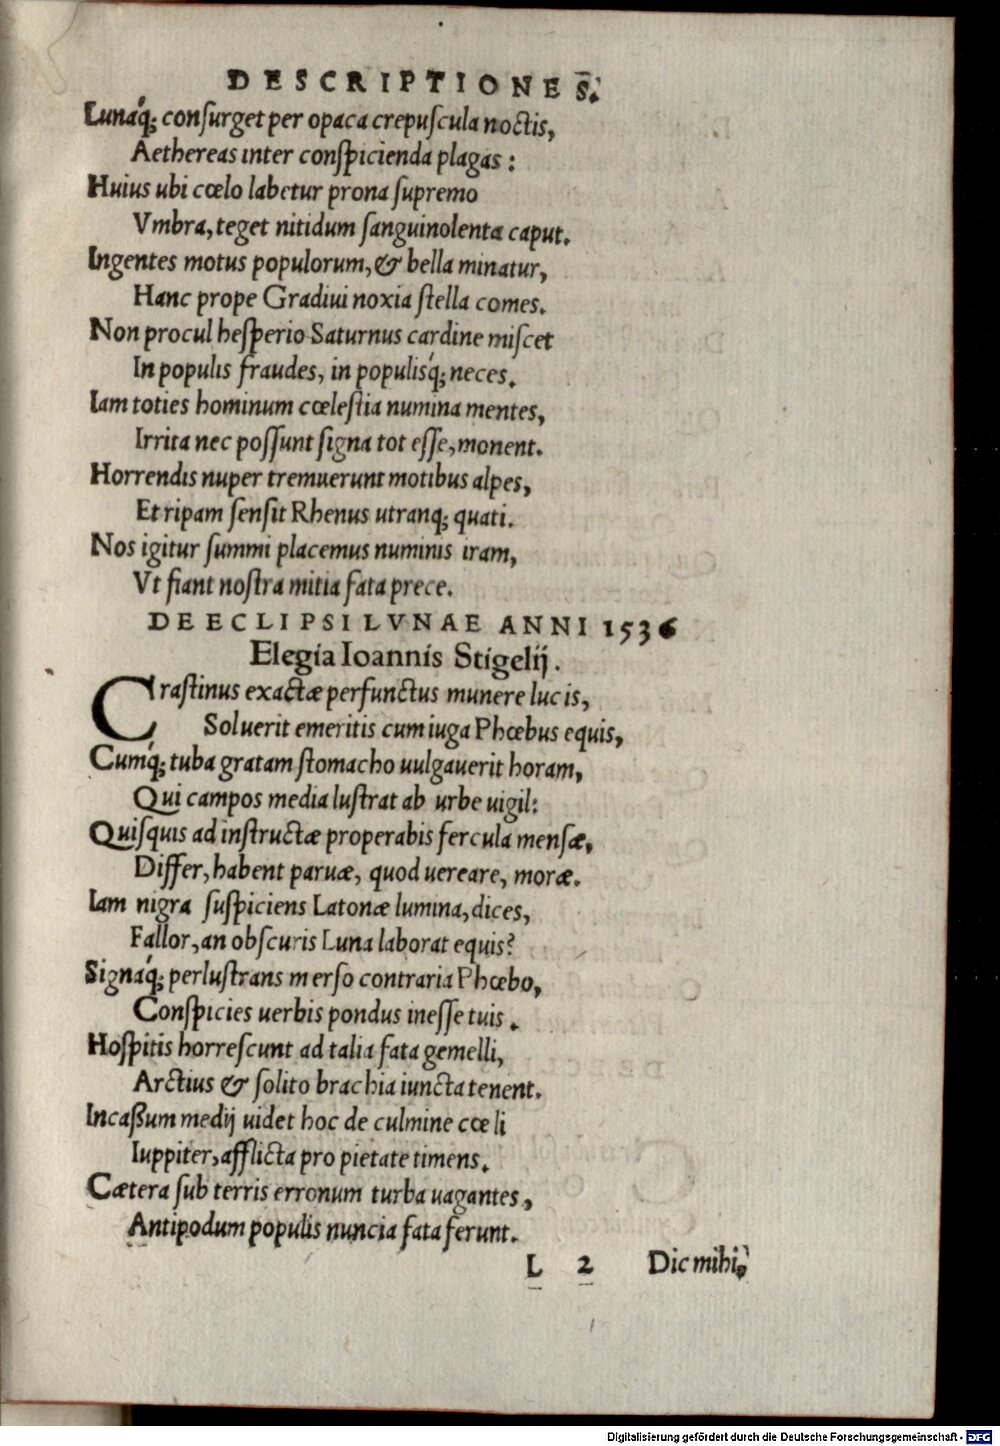 DESCRIPTIONES.
Lunáq; conſurget per opaca crepuſcula noctis,
Aethereas inter conſpicienda plagas:
Huius ubi cœlo labetur prona ſupremo
Vmbra, teget nitidum ſanguinolenta caput.
Ingentes motus populorum, & bella minatur,
Hanc prope Gradiui noxia ſtella comes.
Non procul heſperio Saturnus cardine miſcet
In populis fraudes, in populisq́; neces.
Iam toties hominum cœleſtia numina mentes,
Irrita nec poſſunt ſigna tot eſſe, monent.
Horrendis nuper tremuerunt motibus alpes,
Et ripam ſenſit Rhenus utranq; quati.
Nos igitur ſummi placemus numinis iram,
Vt fiant noſtra mitia fata prece.
DE ECLIPSI LVNAE ANNI 1536
Elegia Ioannis Stigelij.
Craſtinus exactæ perfunctus munere lucis,
Soluerit emeritis cum iuga Phœbus equis,
Cumq́; tuba gratam ſtomacho uulgauerit horam,
Qui campos media luſtrat ab urbe uigil:
Quiſquis ad inſtructæ properabis fercula menſæ,
Differ, habent paruæ, quod uereare, moræ.
Iam nigra ſuſpiciens Latonæ lumina, dices,
Fallor, an obſcuris Luna laborat equis?
Signáq; perluſtrans merſo contraria Phœbo,
Conſpicies uerbis pondus ineſſe tuis.
Hoſpitis horreſcunt ad talia fata gemelli,
Arctius & ſolito brachia iuncta tenent.
Incaßum medij uidet hoc de culmine cœli
Iuppiter, afflicta pro pietate timens.
Cætera ſub terris erronum turba uagantes,
Antipodum populis nuncia fata ferunt.
L 2 Dic mihi,
Digitalisierung gefördert durch die Deutsche Forschungsgemeinschaft - DFG